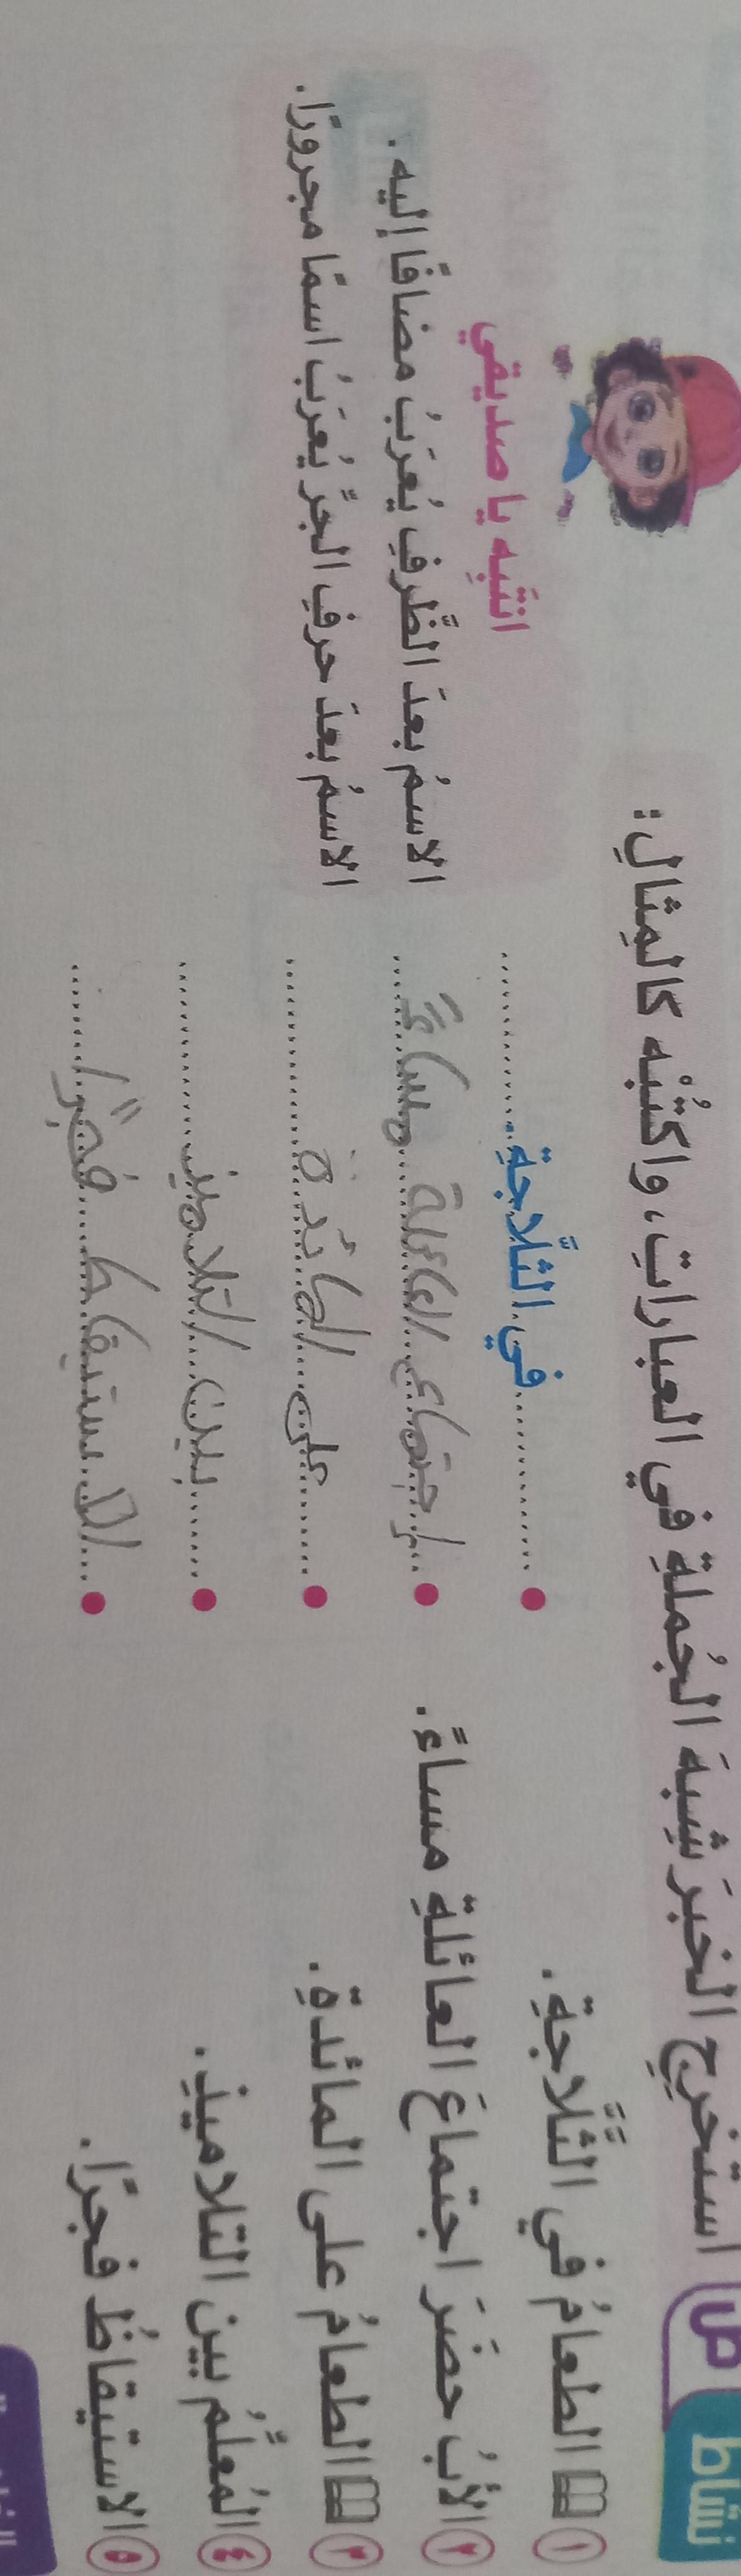 نشاط ص استخرِجِ الخبرَ شِبهَ الجُملةِ في العباراتِ، واكتُبْه كالمِثالِ:
١ الطعامُ في الثَّلَّاجةِ.
في الثلَّاجةِ
٢ الأبُ حضَرَ اجتماعَ العائلةِ مساءً.
إجتماع العائلة مساءً
٣ الطعامُ على المائدةِ.
على المائدة
٤ المُعلِّمُ بين التلاميذِ.
بين التلاميذ
٥ الاستيقاظُ فجرًا.
الاستيقاظ فجرًا
انتَبِه يا صديقي
الاسمُ بعدَ الظَّرفِ يُعرَبُ مضافًا إليه.
الاسمُ بعدَ حرفِ الجرِّ يُعرَبُ اسمًا مجرورًا.